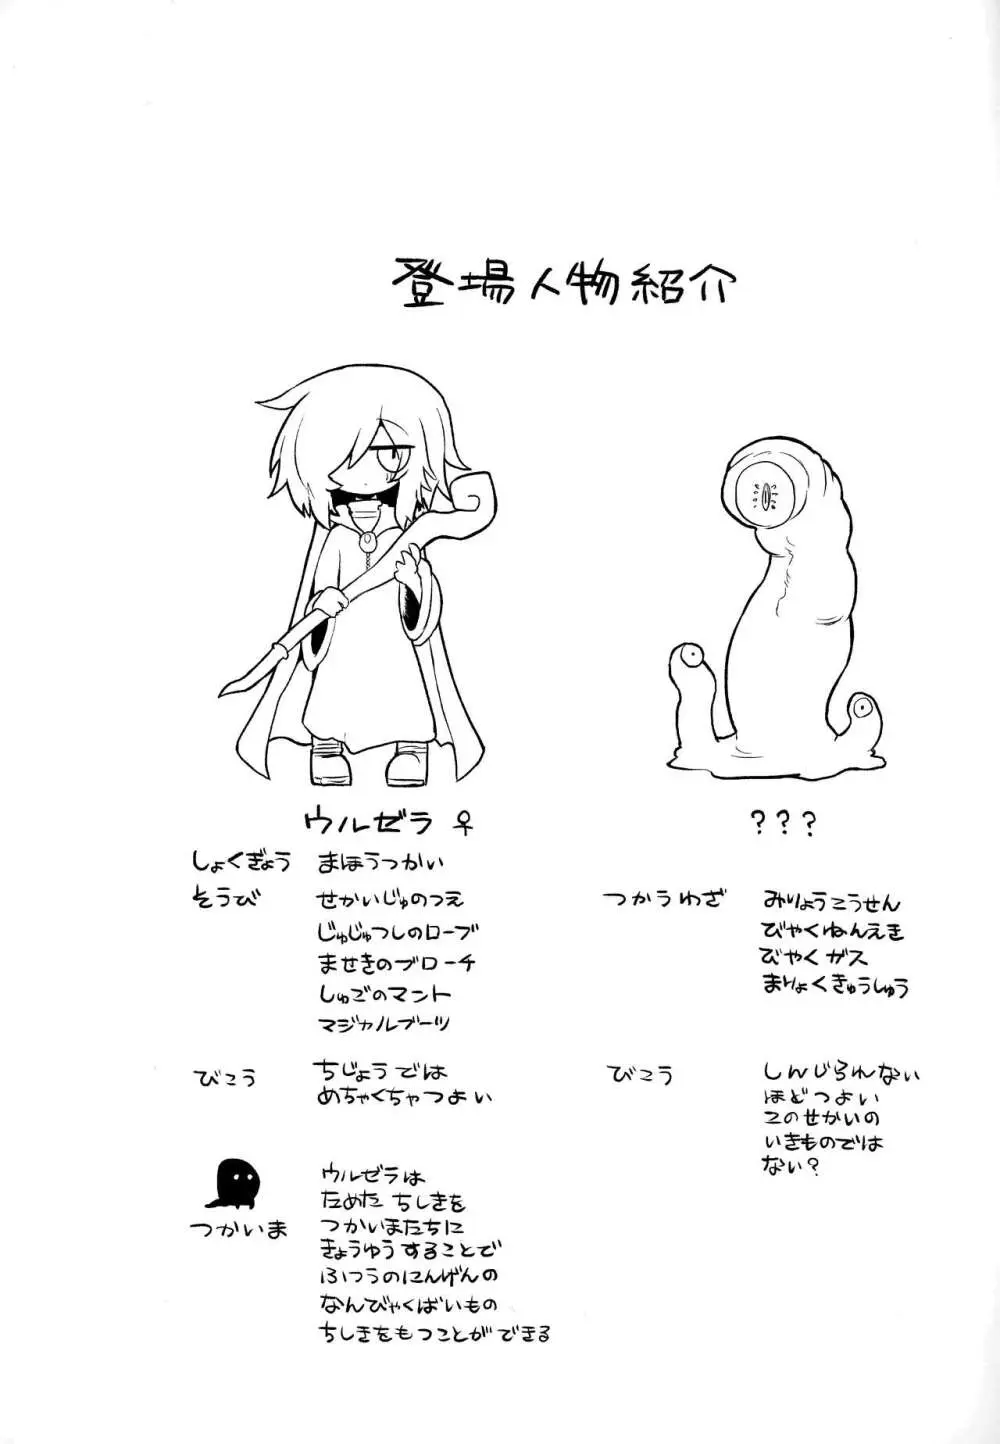 登場人物紹介
ウルゼラ ♀
しょくぎょう まほうつかい
そうび せかいじゅのつえ
じゅじゅつしのローブ
ませきのブローチ
しゅごのマント
マジカルブーツ
びこう ちじょうでは
めちゃくちゃつよい
つかいま
ウルゼラは
ためた ちしきを
つかいまたちに
きょうゆうすることで
ふつうのにんげんの
なんびゃくばいもの
ちしきをもつことができる
???
つかうわざ みりょうこうせん
びやくねんえき
びやくガス
まりょくきゅうしゅう
びこう しんじられない
ほどつよい
このせかいの
いきものでは
ない?